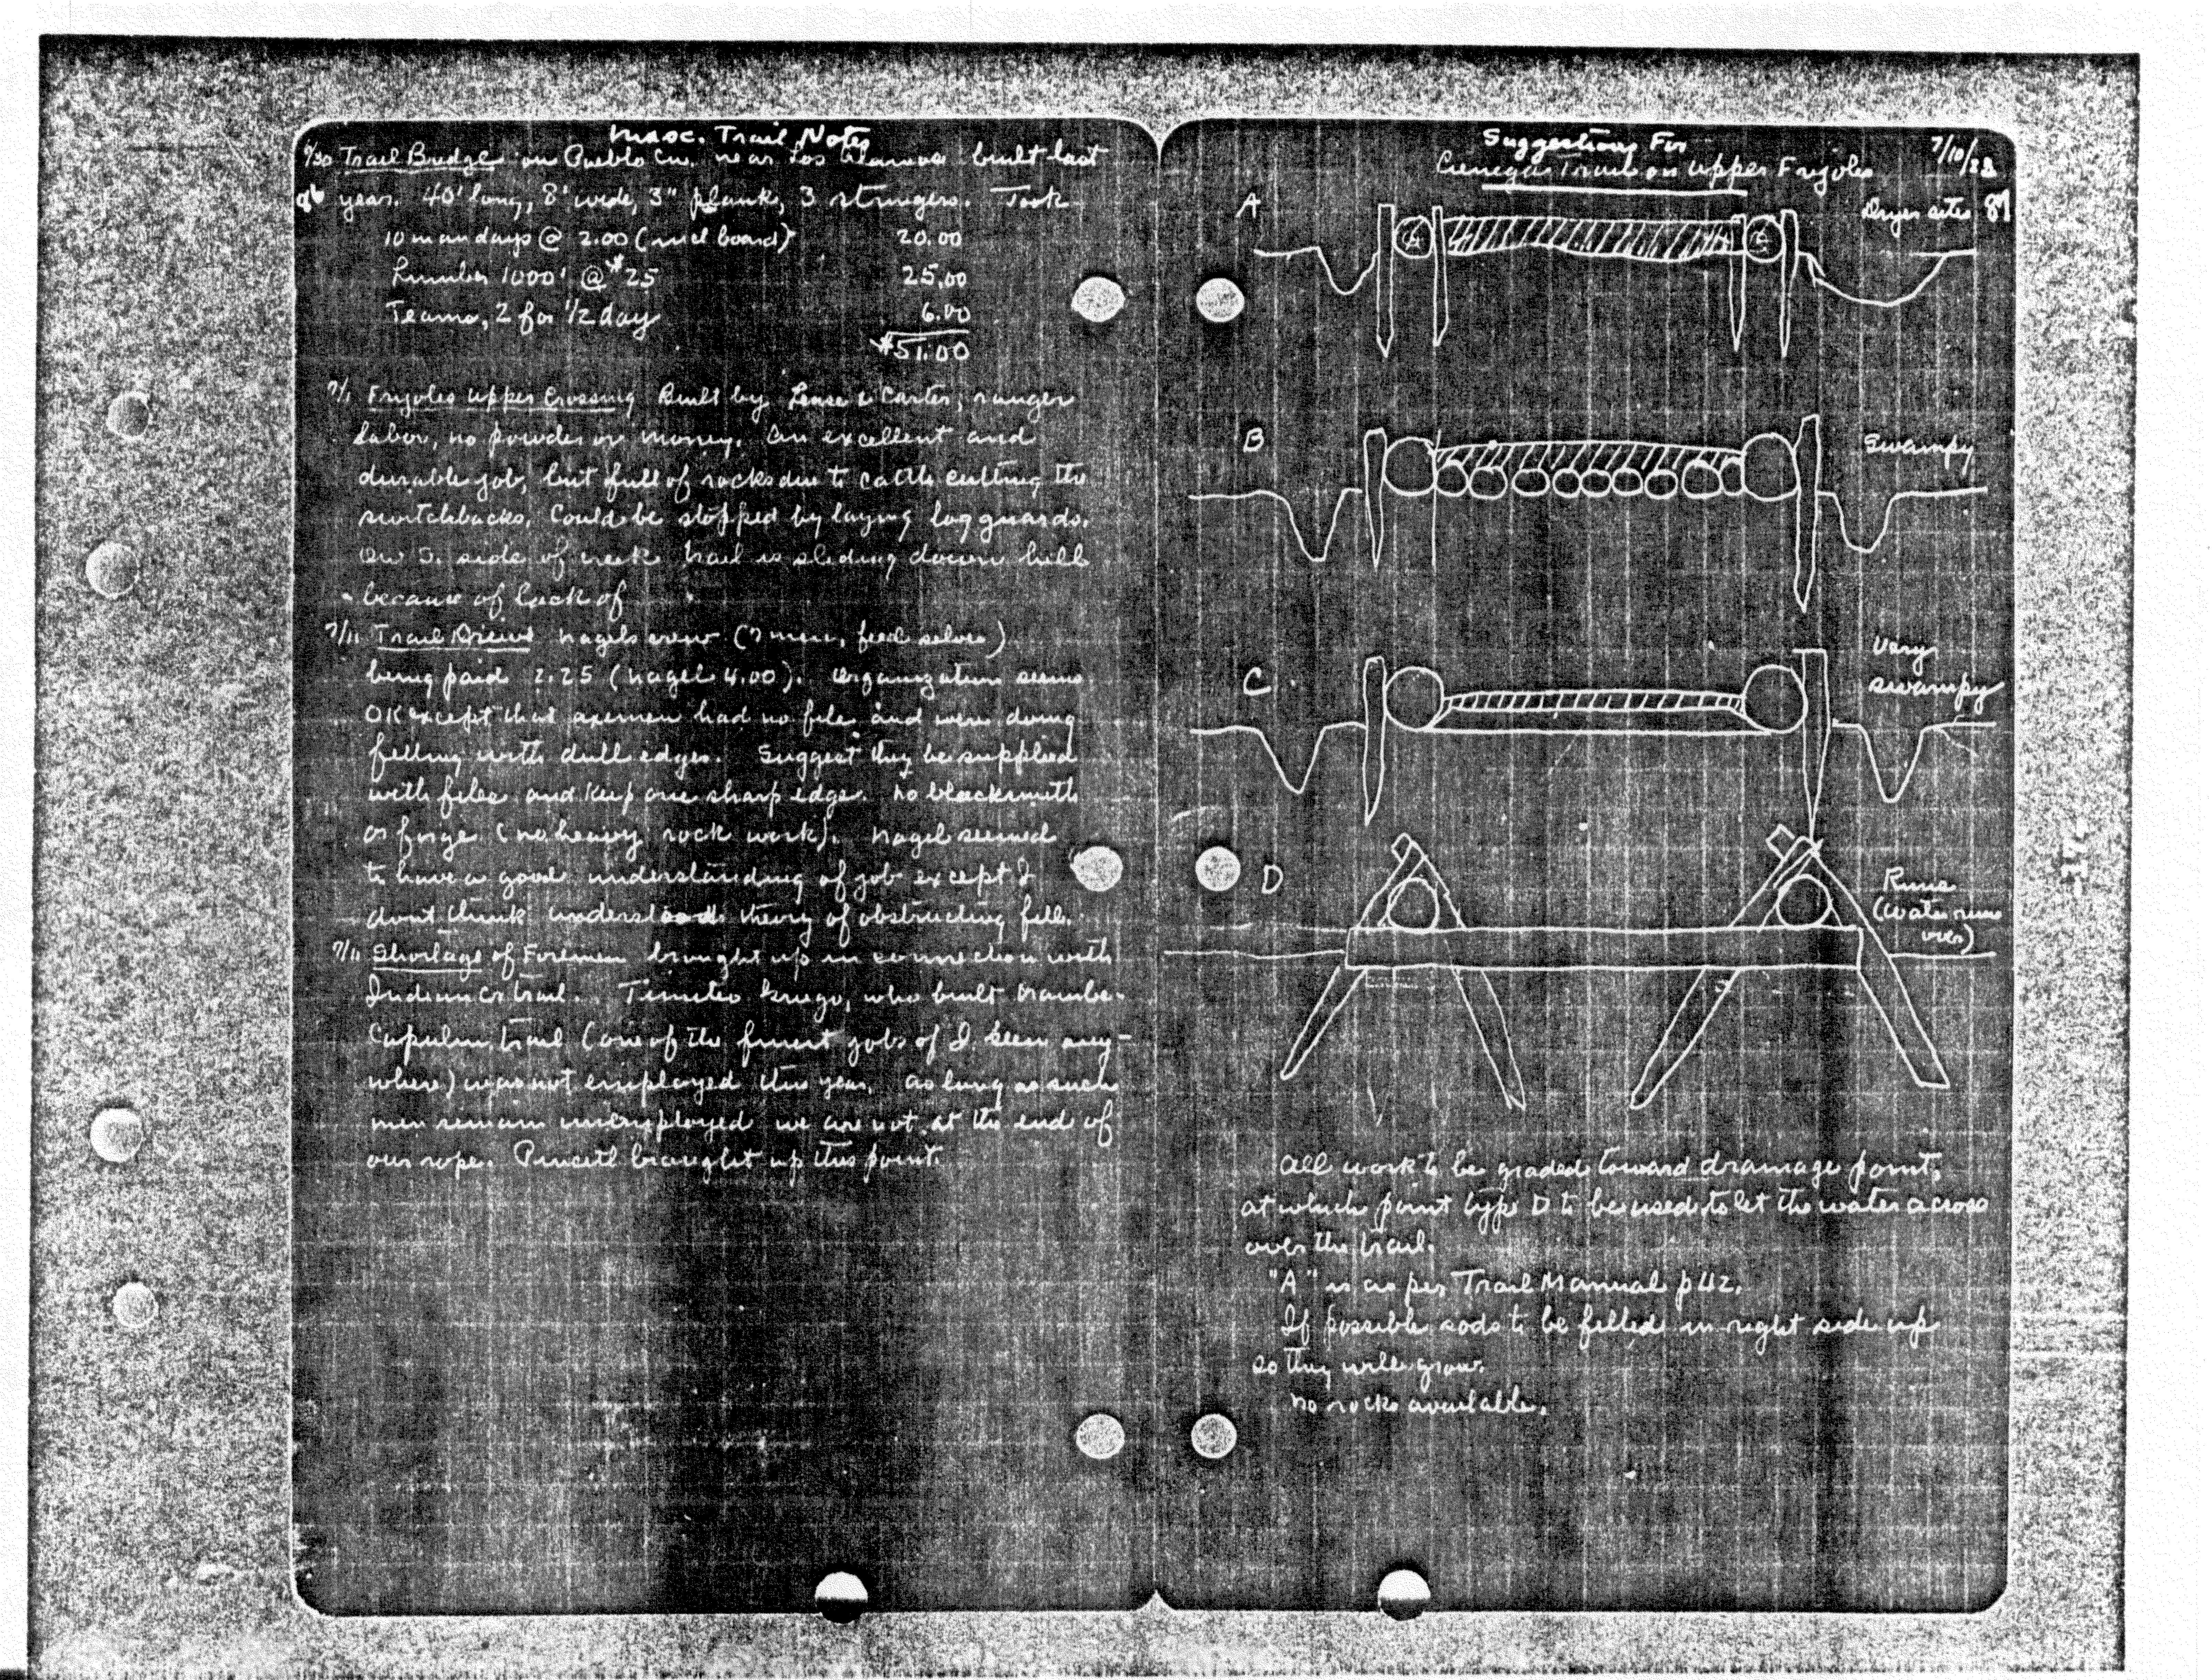 Misc. Trail Notes
6/30 Trail Bridge on Pueblo Cn. near Los Alamos built last
year. 40' long, 8' wide, 3" plank, 3 stringers. Took
10 man days @ 2.00 (incl board) 20.00
Lumber 1000' @ $25 25.00
Teams, 2 for 1/2 day 6.00
$51.00
7/1 Frijoles Upper Crossing Built by Lease & Carter, ranger
labor, no powder or money. An excellent and
durable job, but full of rocks due to cattle cutting the
switchbacks. Could be stopped by laying log guards.
On S. side of creek trail is sliding down hill
because of lack of
7/11 Trail Nagels crew (7 men, feed selves)
being paid 2.25 (Nagel 4.00). Organization seems
OK except that axemen had no file and were doing
felling with dull edges. Suggest they be supplied
with files and keep one sharp edge. No blacksmith
or forge (no heavy rock work). Nagel seemed
to have a good understanding of job except I
dont think understands theory of obstructing fill.
7/11 Shortage of Foremen brought up in connection with
Indian Cr trail. who built
Capulin trail (one of the finest jobs of I seen any-
where) was not employed this year. As long as such
men remain unemployed we are not at the end of
our rope. brought up this point.
Suggestions For
Cienega Trail on Upper Frijoles
7/10/23
87
A
Dryer sites
B
Swampy
C
Very
swampy
D
Runs
(Water runs
over)
All work to be graded toward drainage point,
at which point type D to be used to let the water across
over the trail.
"A" is as per Trail Manual p 42.
If possible sods to be filled in right side up
so they will grow.
No rocks available.
-17-